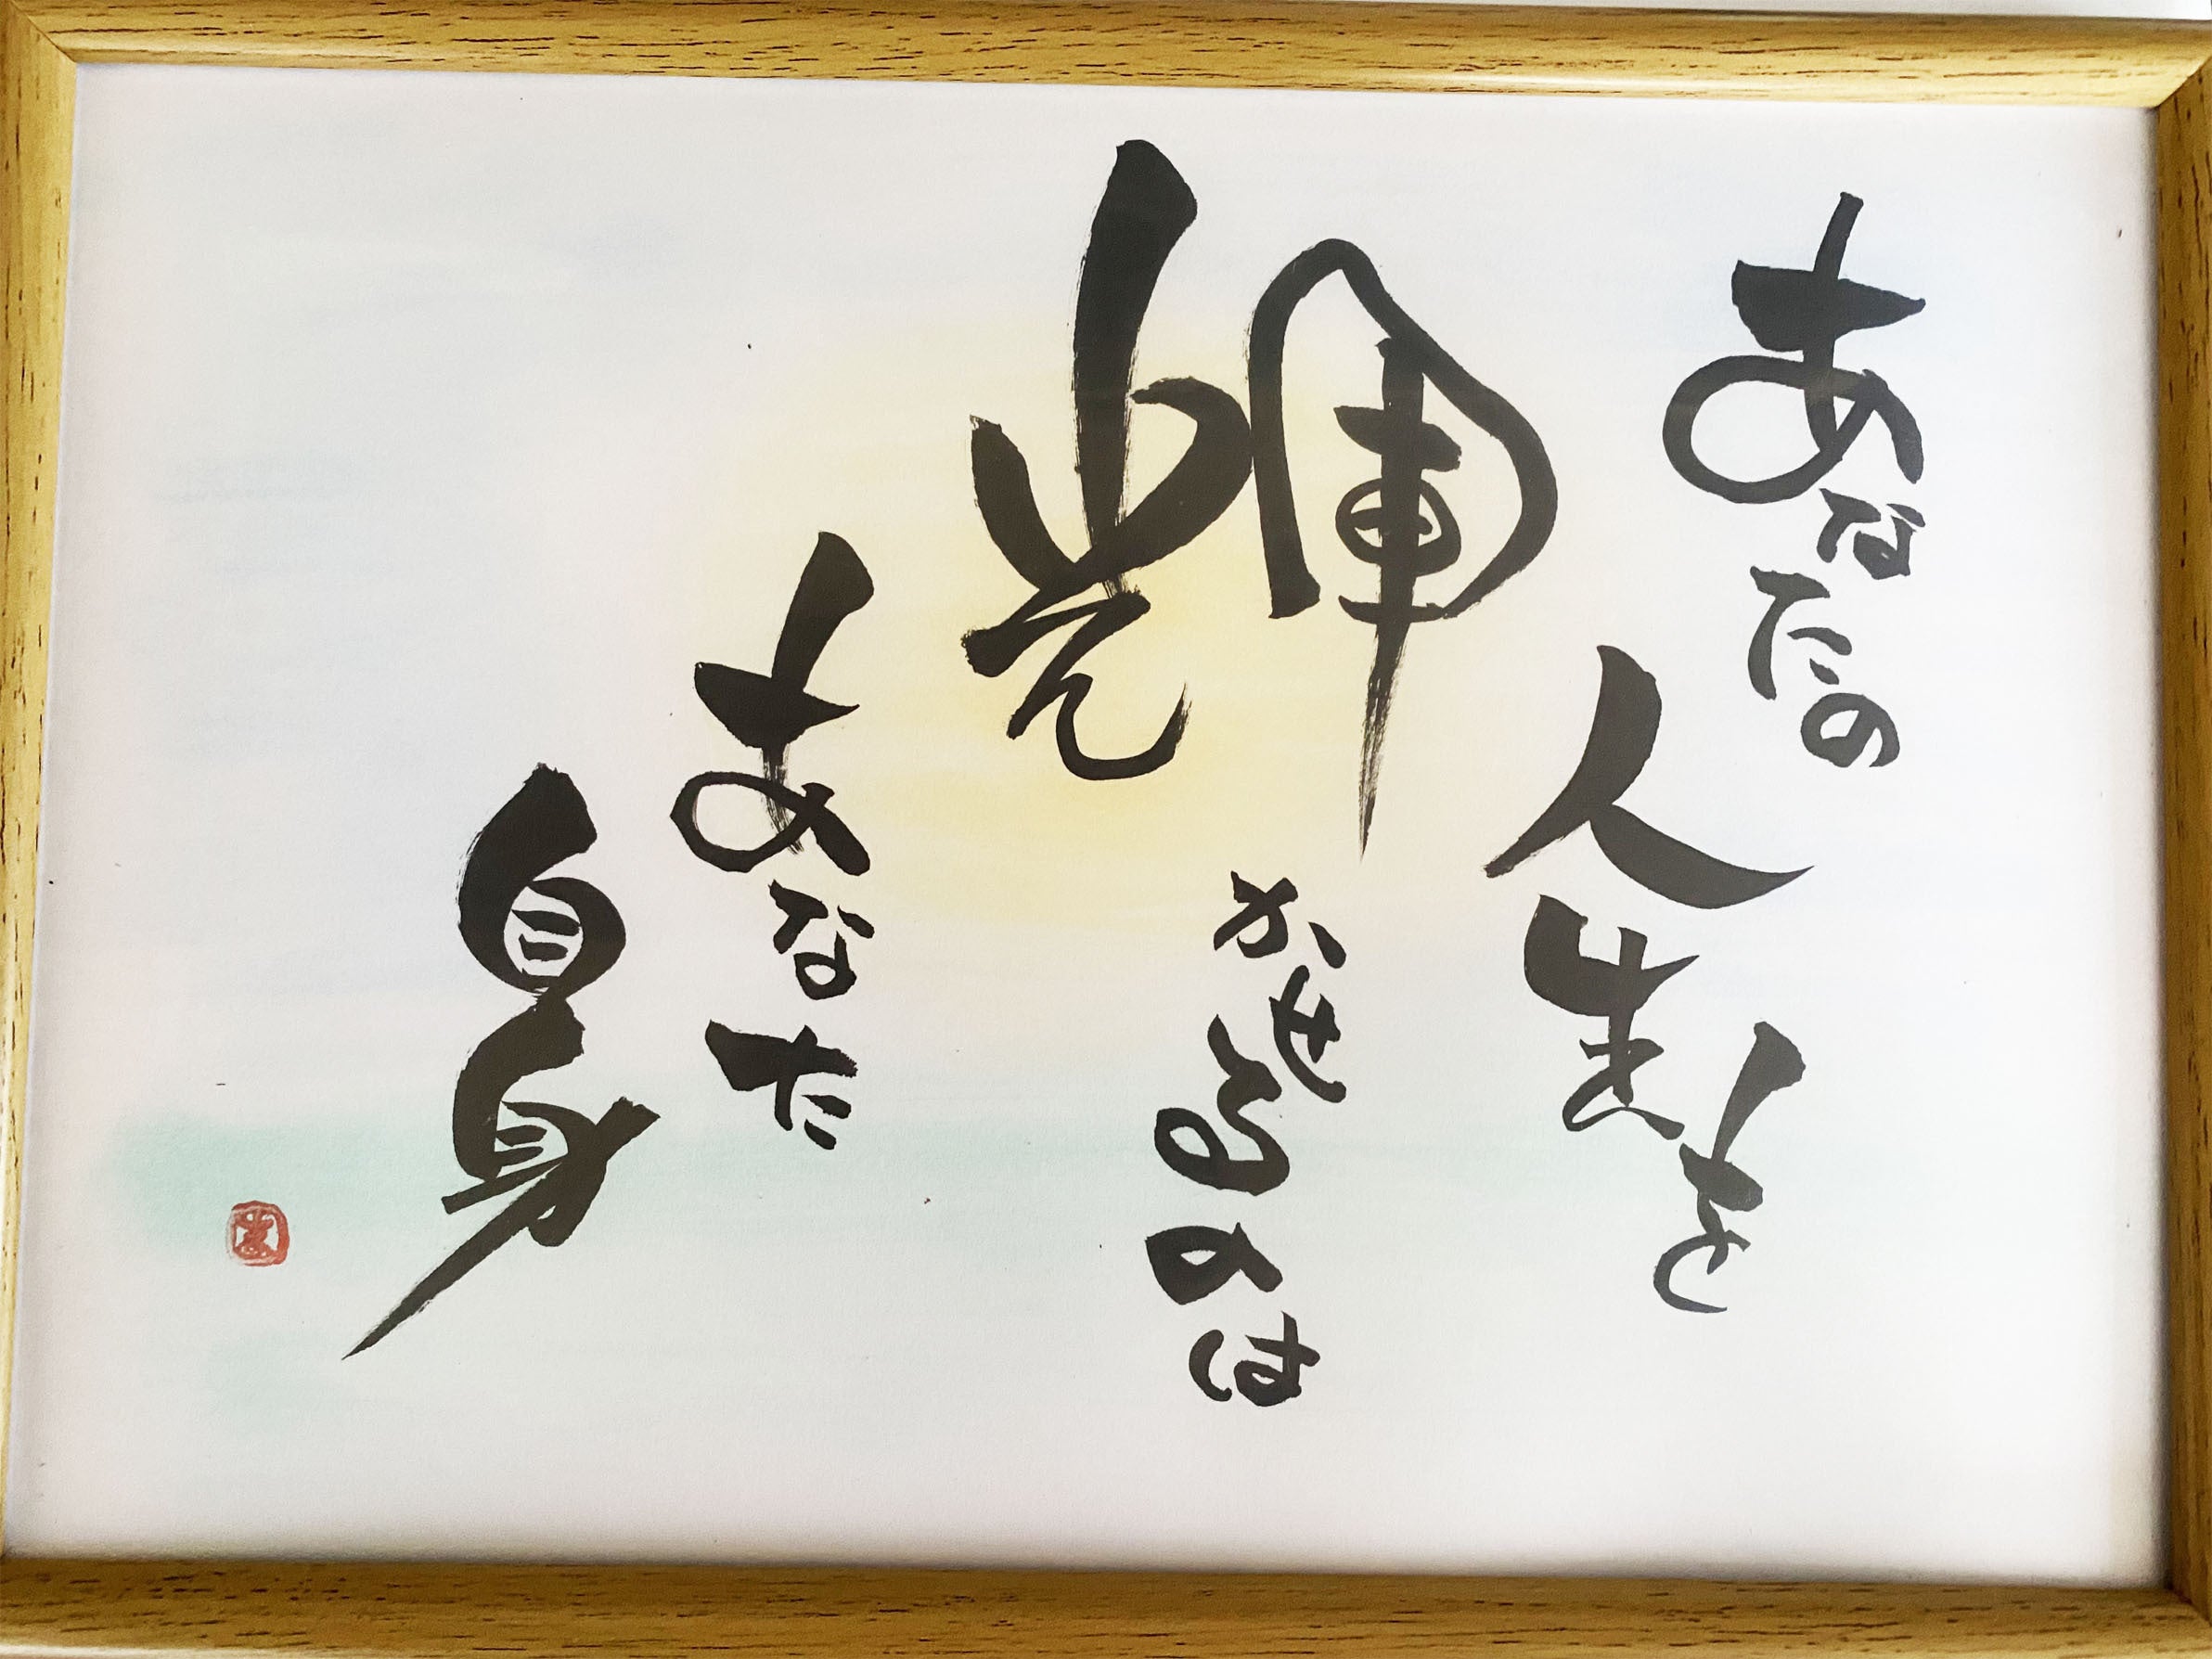 あなたの
人生を
輝かせるのは
あなた
自身